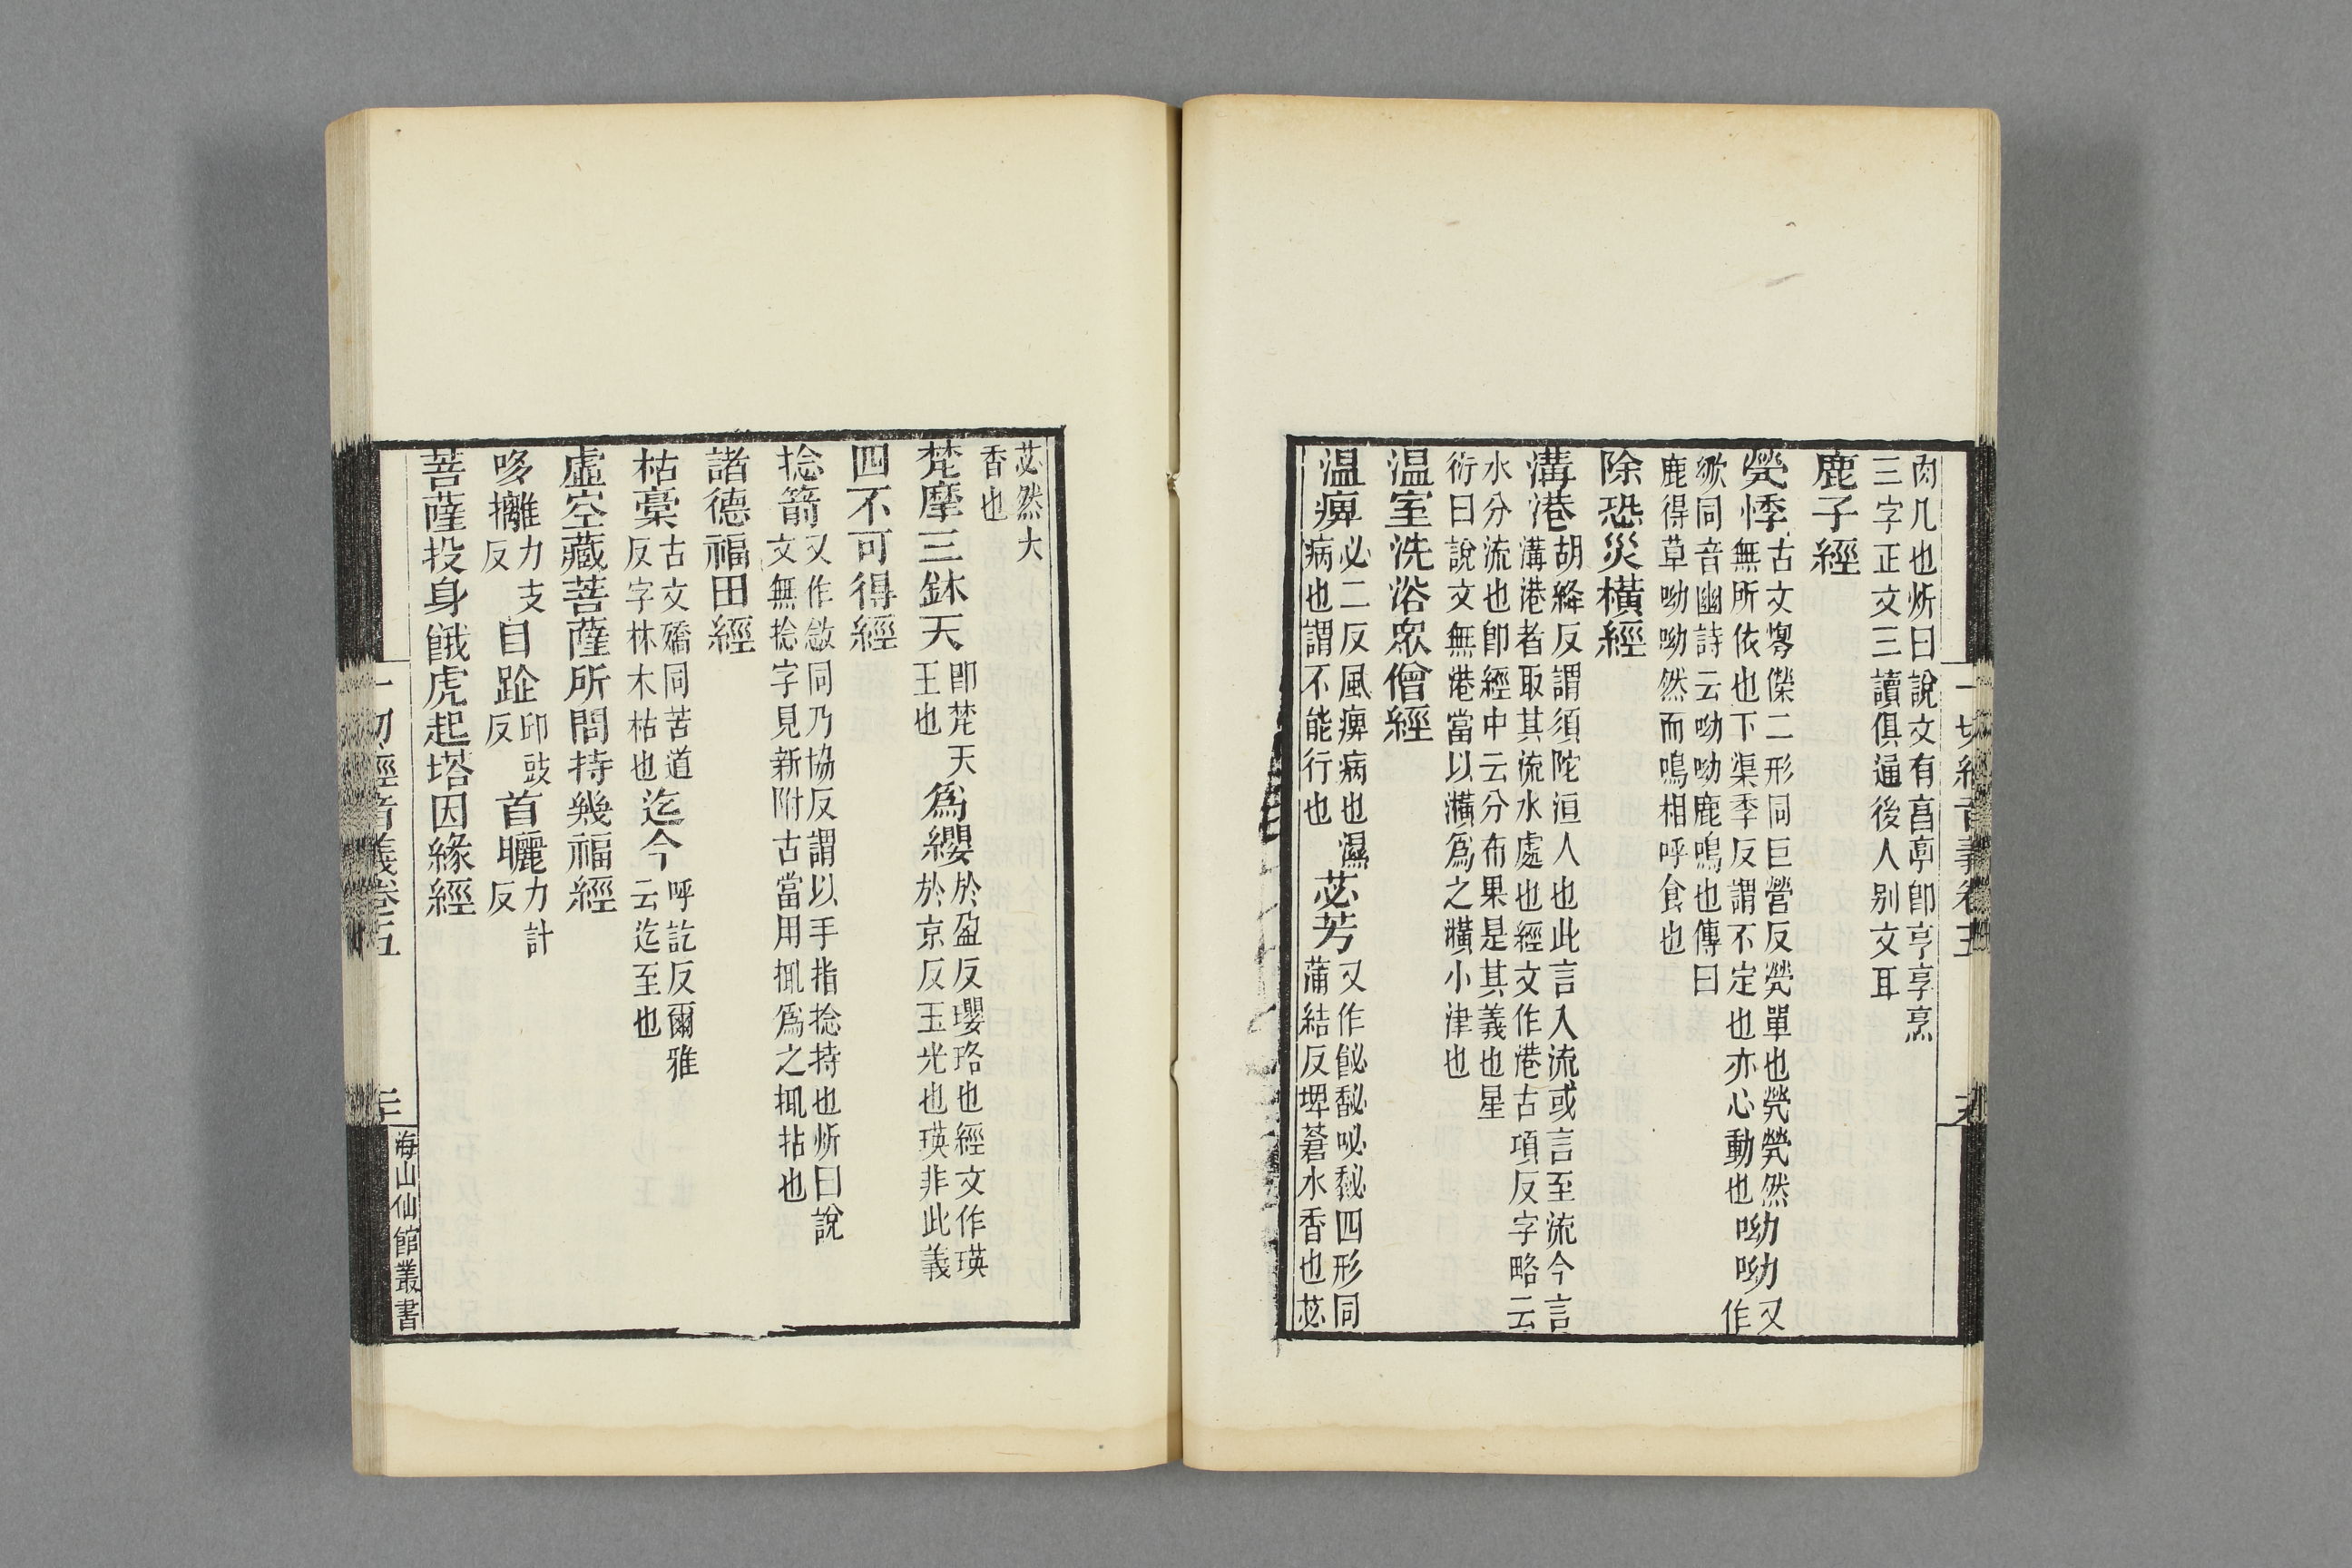 肉几也炘曰說文有亯亭卽亨享烹
三字正文三讀俱通後人别文耳
鹿子經
煢悸古文惸傑二形同巨營反煢單也煢煢然
無所依也下渠季反謂不定也亦心動也
呦呦又
作
㘭同音幽詩云呦呦鹿鳴也傳曰
鹿得草呦呦然而鳴相呼食也
除恐災橫經
溝港胡絳反謂須陀洹人也此言入流或言至流今言
溝港者取其流水處也經文作港古項反字略云
水分流也卽經中云分布果是其義也星
衍曰說文無港當以㶇爲之㶇小津也
温室洗浴衆僧經
温痹必二反風痹病也濕
病也謂不能行也
苾芳又作飶馝咇䬛四形同
蒲結反埤蒼水香也苾
一切經音義卷五
苾然大
香也
梵摩三鉢天卽梵天
王也
爲纓於盈反瓔珞也經文作瑛
於京反玉光也瑛非此義
四不可得經
捻箭又作敜同乃協反謂以手指捻持也炘曰說
文無捻字見新附古當用㧗爲之㧗拈也
諸德福田經
枯槀古文殦同苦道
反字林木枯也
迄今呼訖反爾雅
云迄至也
虛空藏菩薩所問持幾福經
哆攡力支
反
目跐印豉
反
首曬力計
反
菩薩投身餓虎起塔因緣經
一切經音義卷五
海山仙館叢書